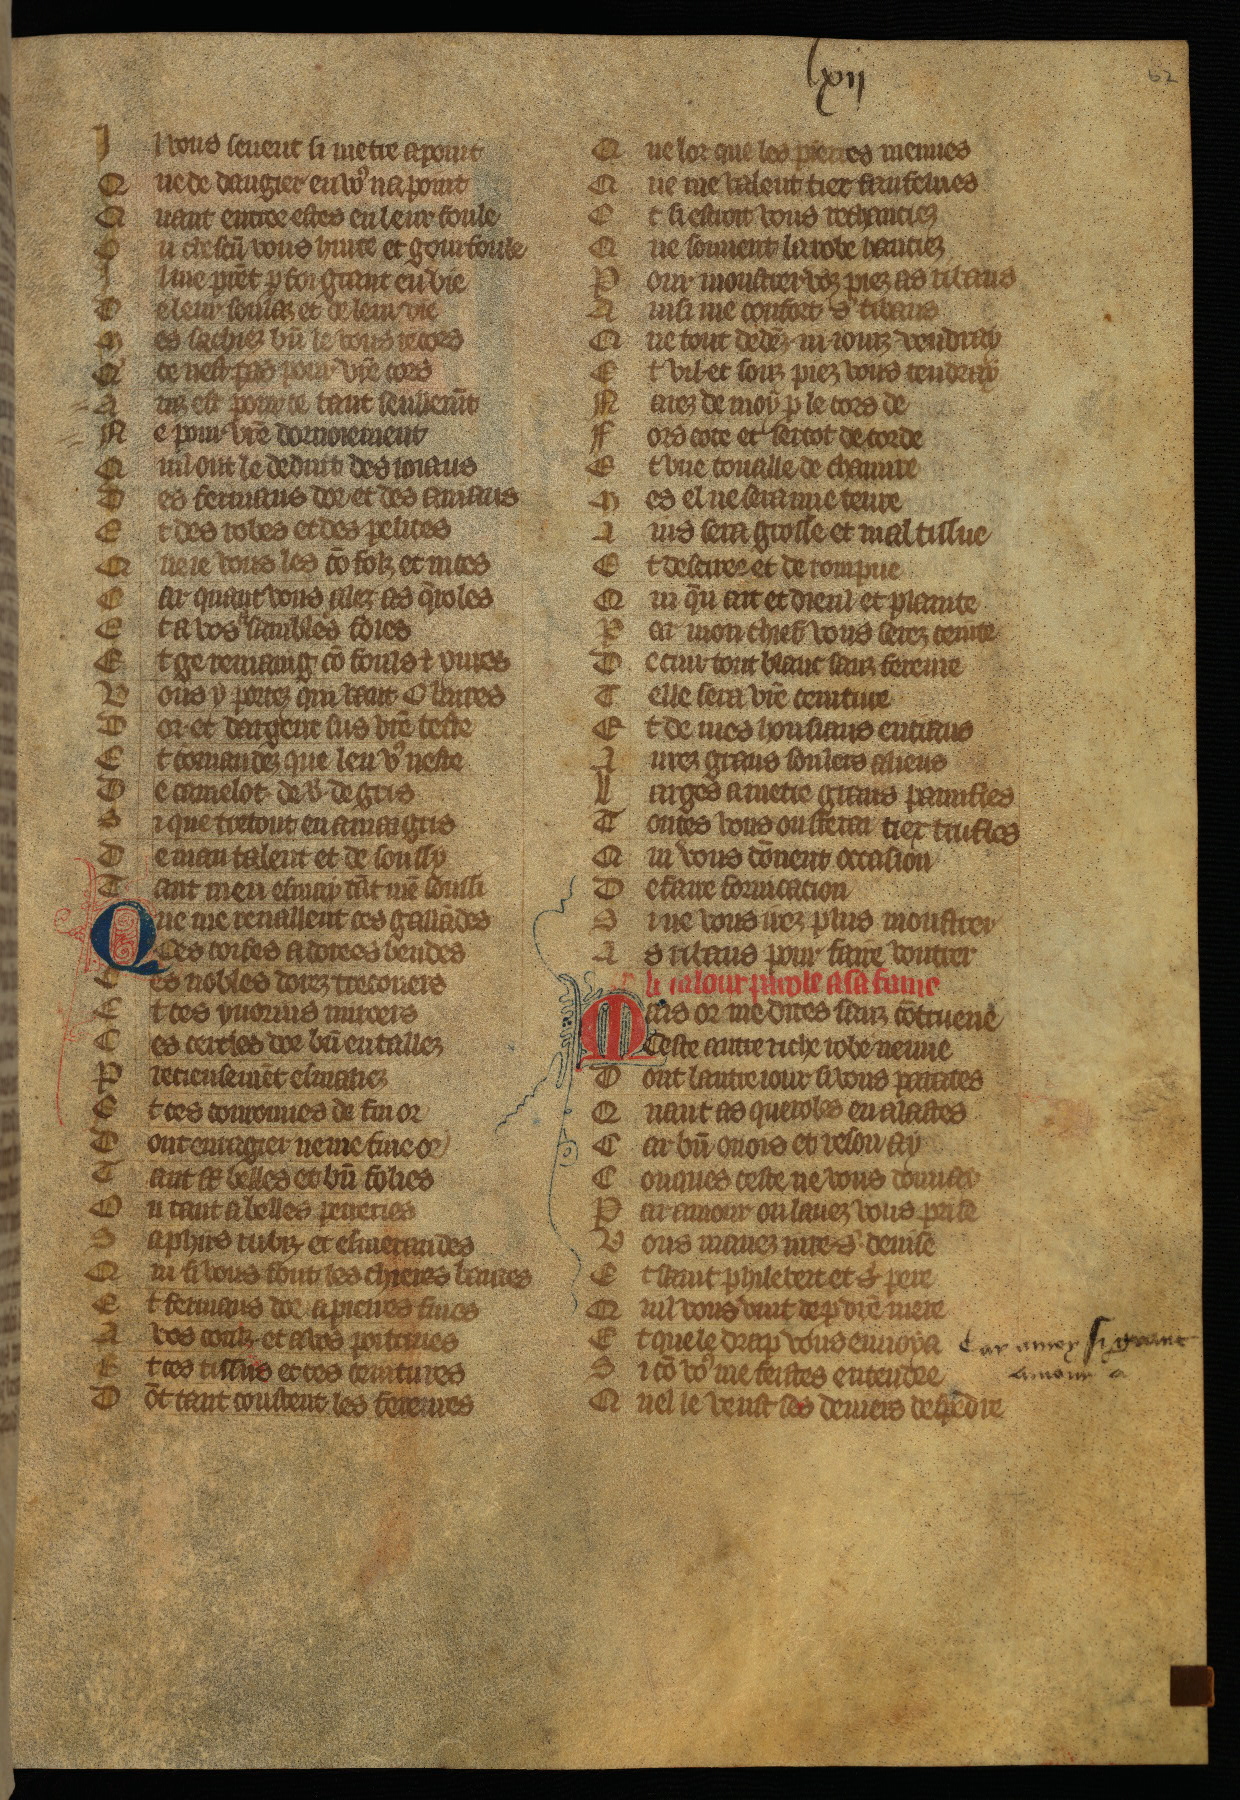 lxij
62
I l vous seuent si metre a point
Q ue de dangier en vo9 na point
Q uant entree estes en leur foule
O u chescū vous hurte et gourfoule
I l me prēt p foy grant enuie
D e leur soulaz et de leur vie
M es sachiez bn̄ le vous recors
Q ce nest pas pour vr̄e cors
A inz est pour ce tant seulemēt
N e pour vr̄e donoiement
Q uil ont le deduit des ioiaus
D es fermaus dor et des aniaus
E t des robes et des pelices
Q ue ie vous les cō folz et nices
C ar quant vous alez as q̄roles
E t a vos sanbles foles
E t ge remaing cō fouls ⁊ yures
V ous y portez qui vaut C liures
D or et dargent sus vr̄e teste
E t comandez que len vo9 veste
D e camelot de v̄ de gris
S i que trestout en amaigris
D e mau talent et de soussy
T ant men esmay tāt mē soussi
Que me renallent ces gallādes
Ces coifes a dorees bendes
C es nobles dorez trecouers
E t ces yuorins miroers
C es cercles dor bn̄ entallez
P recieusemēt esmallez
E t ces couronnes de fin or
D ont enragier ne me fine or
T ant st belles et bn̄ polies
O u tant a belles perreries
S aphirs rubiz et esmeraudes
Q ui si vous font les chieres baudes
E t fermaus dor a pierres fines
A vos coulz et a vos poitrines
E t ces tissus et ces ceintures
D ōt tant coustent les ferreures
Q ue lor que les pierres menues
Q ue me valent tiex fanfelues
E t si estroit vous rechauciez
Q ue souuent la robe hauciez
P our moustrer voz piez as ribaus
A insi me confort s. tibaus
Q ue tout dedēz iii iourz vendray
E t vil et souz piez vous tendray
N aurez de moy p le cors de
F ors cote et sercot de corde
E t vne touaille de chanure
M es el ne sera mie tenure
A ins sera grosse et mal tissue
E t desciree et de rompue
Q ui qu en ait et dieul et plainte
P ar mon chief vous serez ceinte
D e cuir tout blanc sanz ferreure
T elle sera vr̄e ceinture
E t de mes housiaus entiaus
A urez grans soulers a liens
L arges a metre grans panufles
T outes vous osterai tiex trufles
Q ui vous dōnent occasion
D e faire fornication
S i ne vous irez plus moustrer
A s ribaus pour faire voutrer
li ialour parole a sa fame
Mais or me dites sanz cōtrueue
Ceste autre riche robe neuue
D ont lautre iour si vous parastes
Q uant as queroles en alastes
C ar bn̄ cnois et reson ay
C onques ceste ne vous donnay
P ar amour ou lauez vous prise
V ous mauez iure s. denise
E t saint philebert et s. pere
Q uil vous vint de p vr̄e mere
E t que le drap vous enuoya
S i cō vo9 me feistes entendre
Q uel le veust ses deniers despēdre
Car amoy si grant
amour a